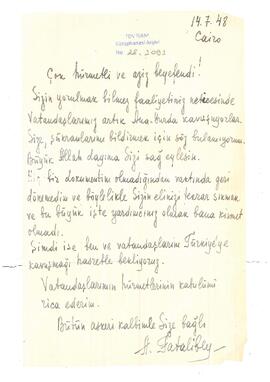 14.7.48
Cairo
TDV İSAM
Kütüphanesi Arşivi
No
Çok hürmetli ve aziz beyefendi!
Sizin yorulmak bilmez faaliyetiniz neticesinde
Vatandaşlarımız artık Ana-Yurda kavuşuyorlar.
Size, şükranlarımı bildirmek için söz bulamıyorum.
Büyük Allah dayıma Sizi sağ eylesin.
bir dokumentim olmadığından vaktında geri
dönemedim ve böylelikle Sizin elinizi tekrar sıkmak
ve bu büyük işte yardımcınız olmak bana kısmet
olmadı.
Şimdi ise ben ve vatandaşlarım Türkiye'ye
kavuşmağı hasretle bekliyoruz.
Vatandaşlarımın hürmetlerinin kabulünü
rica ederim.
Bütün askeri kalbimle Size bağlı
A. Fatalibey